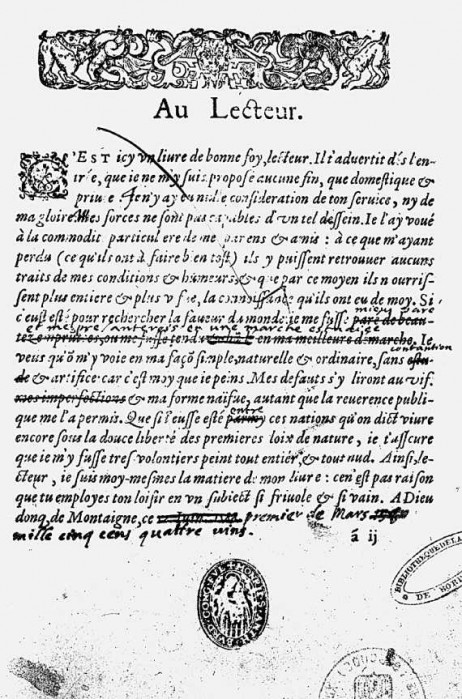 Au Lecteur.
C'EST icy vn liure de bonne foy, lecteur. Il t'aduertit dés l'en-
trée, que ie ne m'y suis proposé aucune fin, que domestique &
priuée. Ie n'y ay eu nulle consideration de ton seruice, ny de
ma gloire. Mes forces ne sont pas capables d'vn tel dessein. Ie l'ay voué
à la commodité particuliere de mes parens & amis : à ce que m'ayant
perdu (ce qu'ils ont à faire bien tost) ils y puissent retrouuer aucuns
traits de mes conditions & humeurs, & que par ce moyen ils nourris-
sent plus entiere & plus vifue, la connoissance qu'ils ont eu de moy. Si
mieus paré
c'eust esté pour rechercher la faueur du monde: ie me fusse paré de beau-
et me presanterois en une marche estudiee
en ma meilleure démarche. Ie
contantion
veus qu'on m'y voie en ma façon simple, naturelle & ordinaire, sans estu-
de & artifice: car c'est moy que ie peins. Mes defauts s'y liront au vif,
mes imperfections & ma forme naïfue, autant que la reuerence publi-
entre
que me l'a permis. Que si i'eusse esté parmy ces nations qu'on dict viure
encore sous la douce liberté des premieres loix de nature, ie t'asseure
que ie m'y fusse tres volontiers peint tout entier, & tout nud. Ainsi, le-
cteur, ie suis moy-mesmes la matiere de mon liure : ce n'est pas raison
que tu employes ton loisir en vn subiect si friuole & si vain. A Dieu
donq, de Montaigne, ce premier de Mars
mille cinq cens quattre vins.
ã ij
BIBLIOTHEQUE DE LA
DE BOR